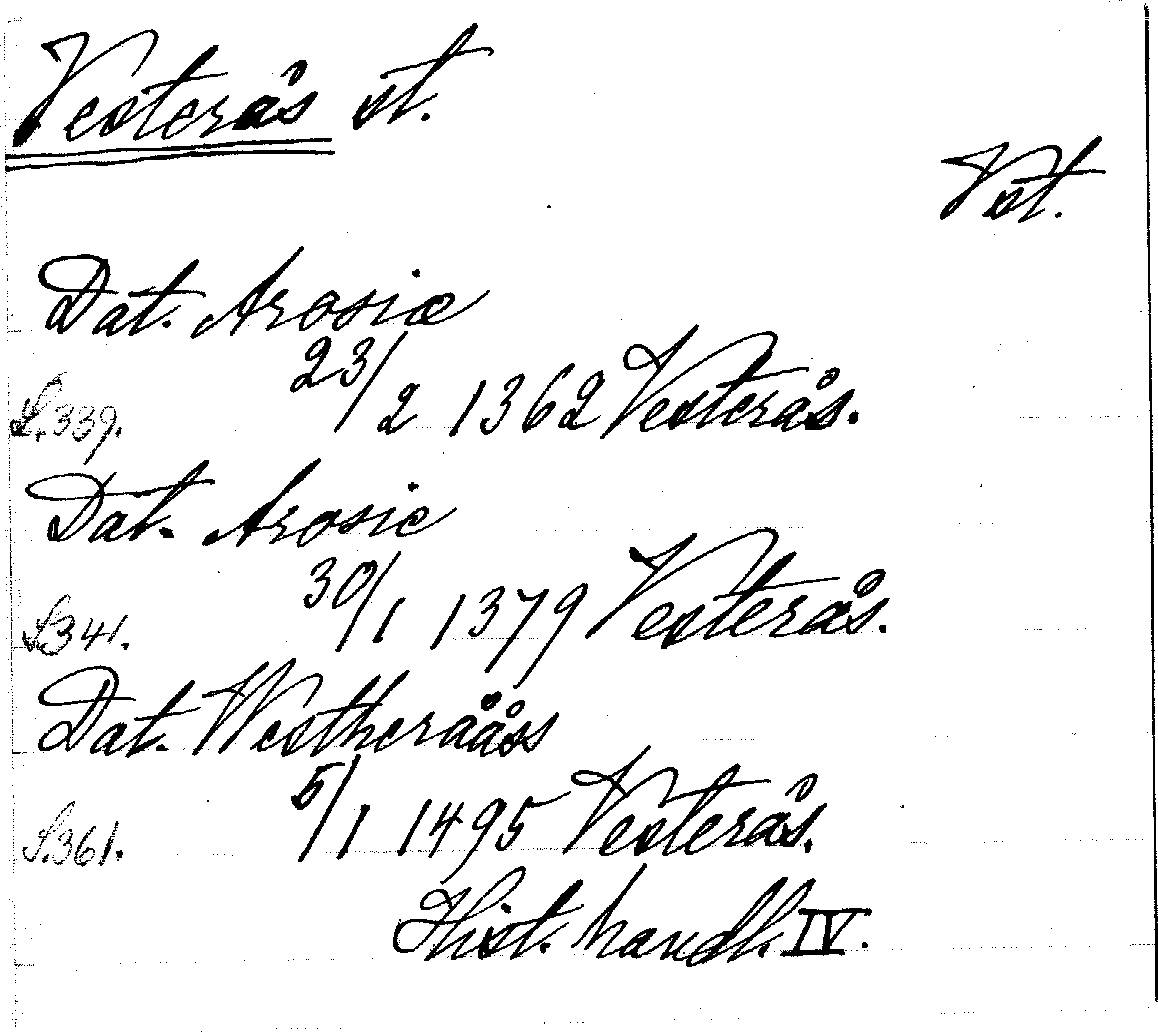 Vesterås st.
Vst.
Dat. Arosiæ
23/2 1362 Vesterås.
S. 339.
Dat. Arosie
30/1 1379 Vesterås.
S. 341.
Dat. Westherååss
5/1 1495 Vesterås.
S. 361.
Hist. handl. IV.